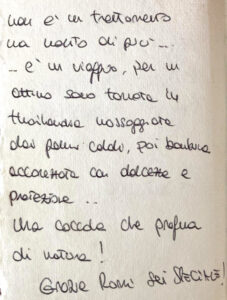 non è un trattamento
ma molto di più...
.. è un viaggio, per un
attimo sono tornata in
thailandia massaggiata
dai panni caldi, poi bambina
accarezzata con dolcezza e
protezione ..
Una coccola che profuma
di natura!
Grazie Romi sei SPECIALE!